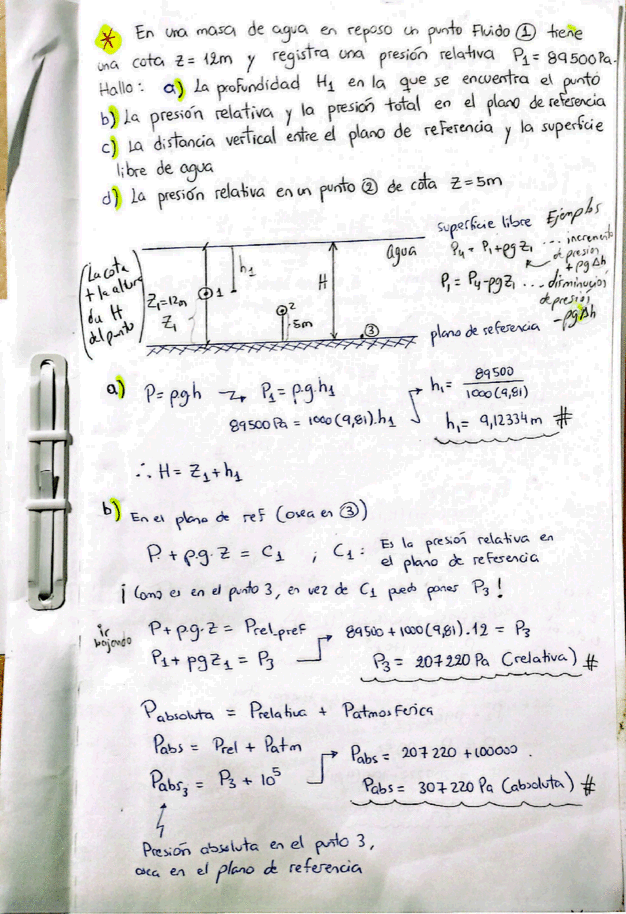 * En una masa de agua en reposo un punto Fluido ① tiene
una cota z = 12m y registra una presión relativa P1 = 89500 Pa.
Hallo: a) La profundidad H1 en la que se encuentra el punto
b) La presión relativa y la presión total en el plano de referencia
c) La distancia vertical entre el plano de referencia y la superficie
libre de agua
d) La presión relativa en un punto ② de cota Z = 5m
superficie libre Ejemplos
P4 = P1 + ρg Z1 ... incremento
de presión
+ ρg Δh
P1 = P4 - ρg Z1 ... disminución
de presión
- ρg Δh
(La cota
+ la altura
del punto)
agua
h1
H
1
Z1=12m
Z1
2
5m
3
plano de referencia
a) P = ρ.g h → P1 = ρ.g.h1
89500 Pa = 1000 (9,81).h1
h1 = 89500 / 1000 (9,81)
h1 = 9,12334 m #
∴ H = Z1 + h1
b) En el plano de ref (osea en ③)
P + ρ.g. Z = C1 ; C1: Es la presión relativa en
el plano de referencia
¡ Como es en el punto 3, en vez de C1 puedo poner P3 !
ir
bajando
P + ρ.g. Z = Prel_pref
P1 + ρg Z1 = P3
89500 + 1000 (9,81) .12 = P3
P3 = 207220 Pa (relativa) #
Pabsoluta = Prelativa + Patmosferica
Pabs = Prel + Patm
Pabs3 = P3 + 10⁵
Pabs = 207 220 + 100000 .
Pabs = 307 220 Pa (absoluta) #
Presión absoluta en el punto 3,
osea en el plano de referencia